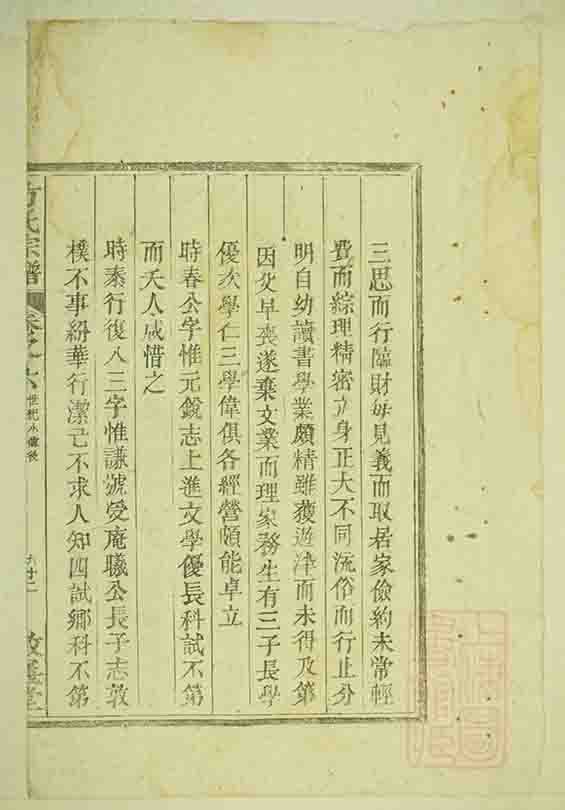 三思而行臨財每見義而取居家儉約未常輕
費而綜理精密立身正大不同流俗而行止分
明自幼讀書學業頗精雖獲遊泮而未得及第
因父早喪遂棄文業而理家務生有三子長學
優次學仁三學偉俱各經營頗能卓立
時春公字惟元銳志上進文學優長科試不第
而夭人咸惜之
時泰行復八三字惟謙號受庵職公長子志敦
樸不事紛華行潔己不求人知四試鄉科不第
方氏宗譜
卷之八
世紀小傳後
六廿二
敦義堂
上海圖書館藏